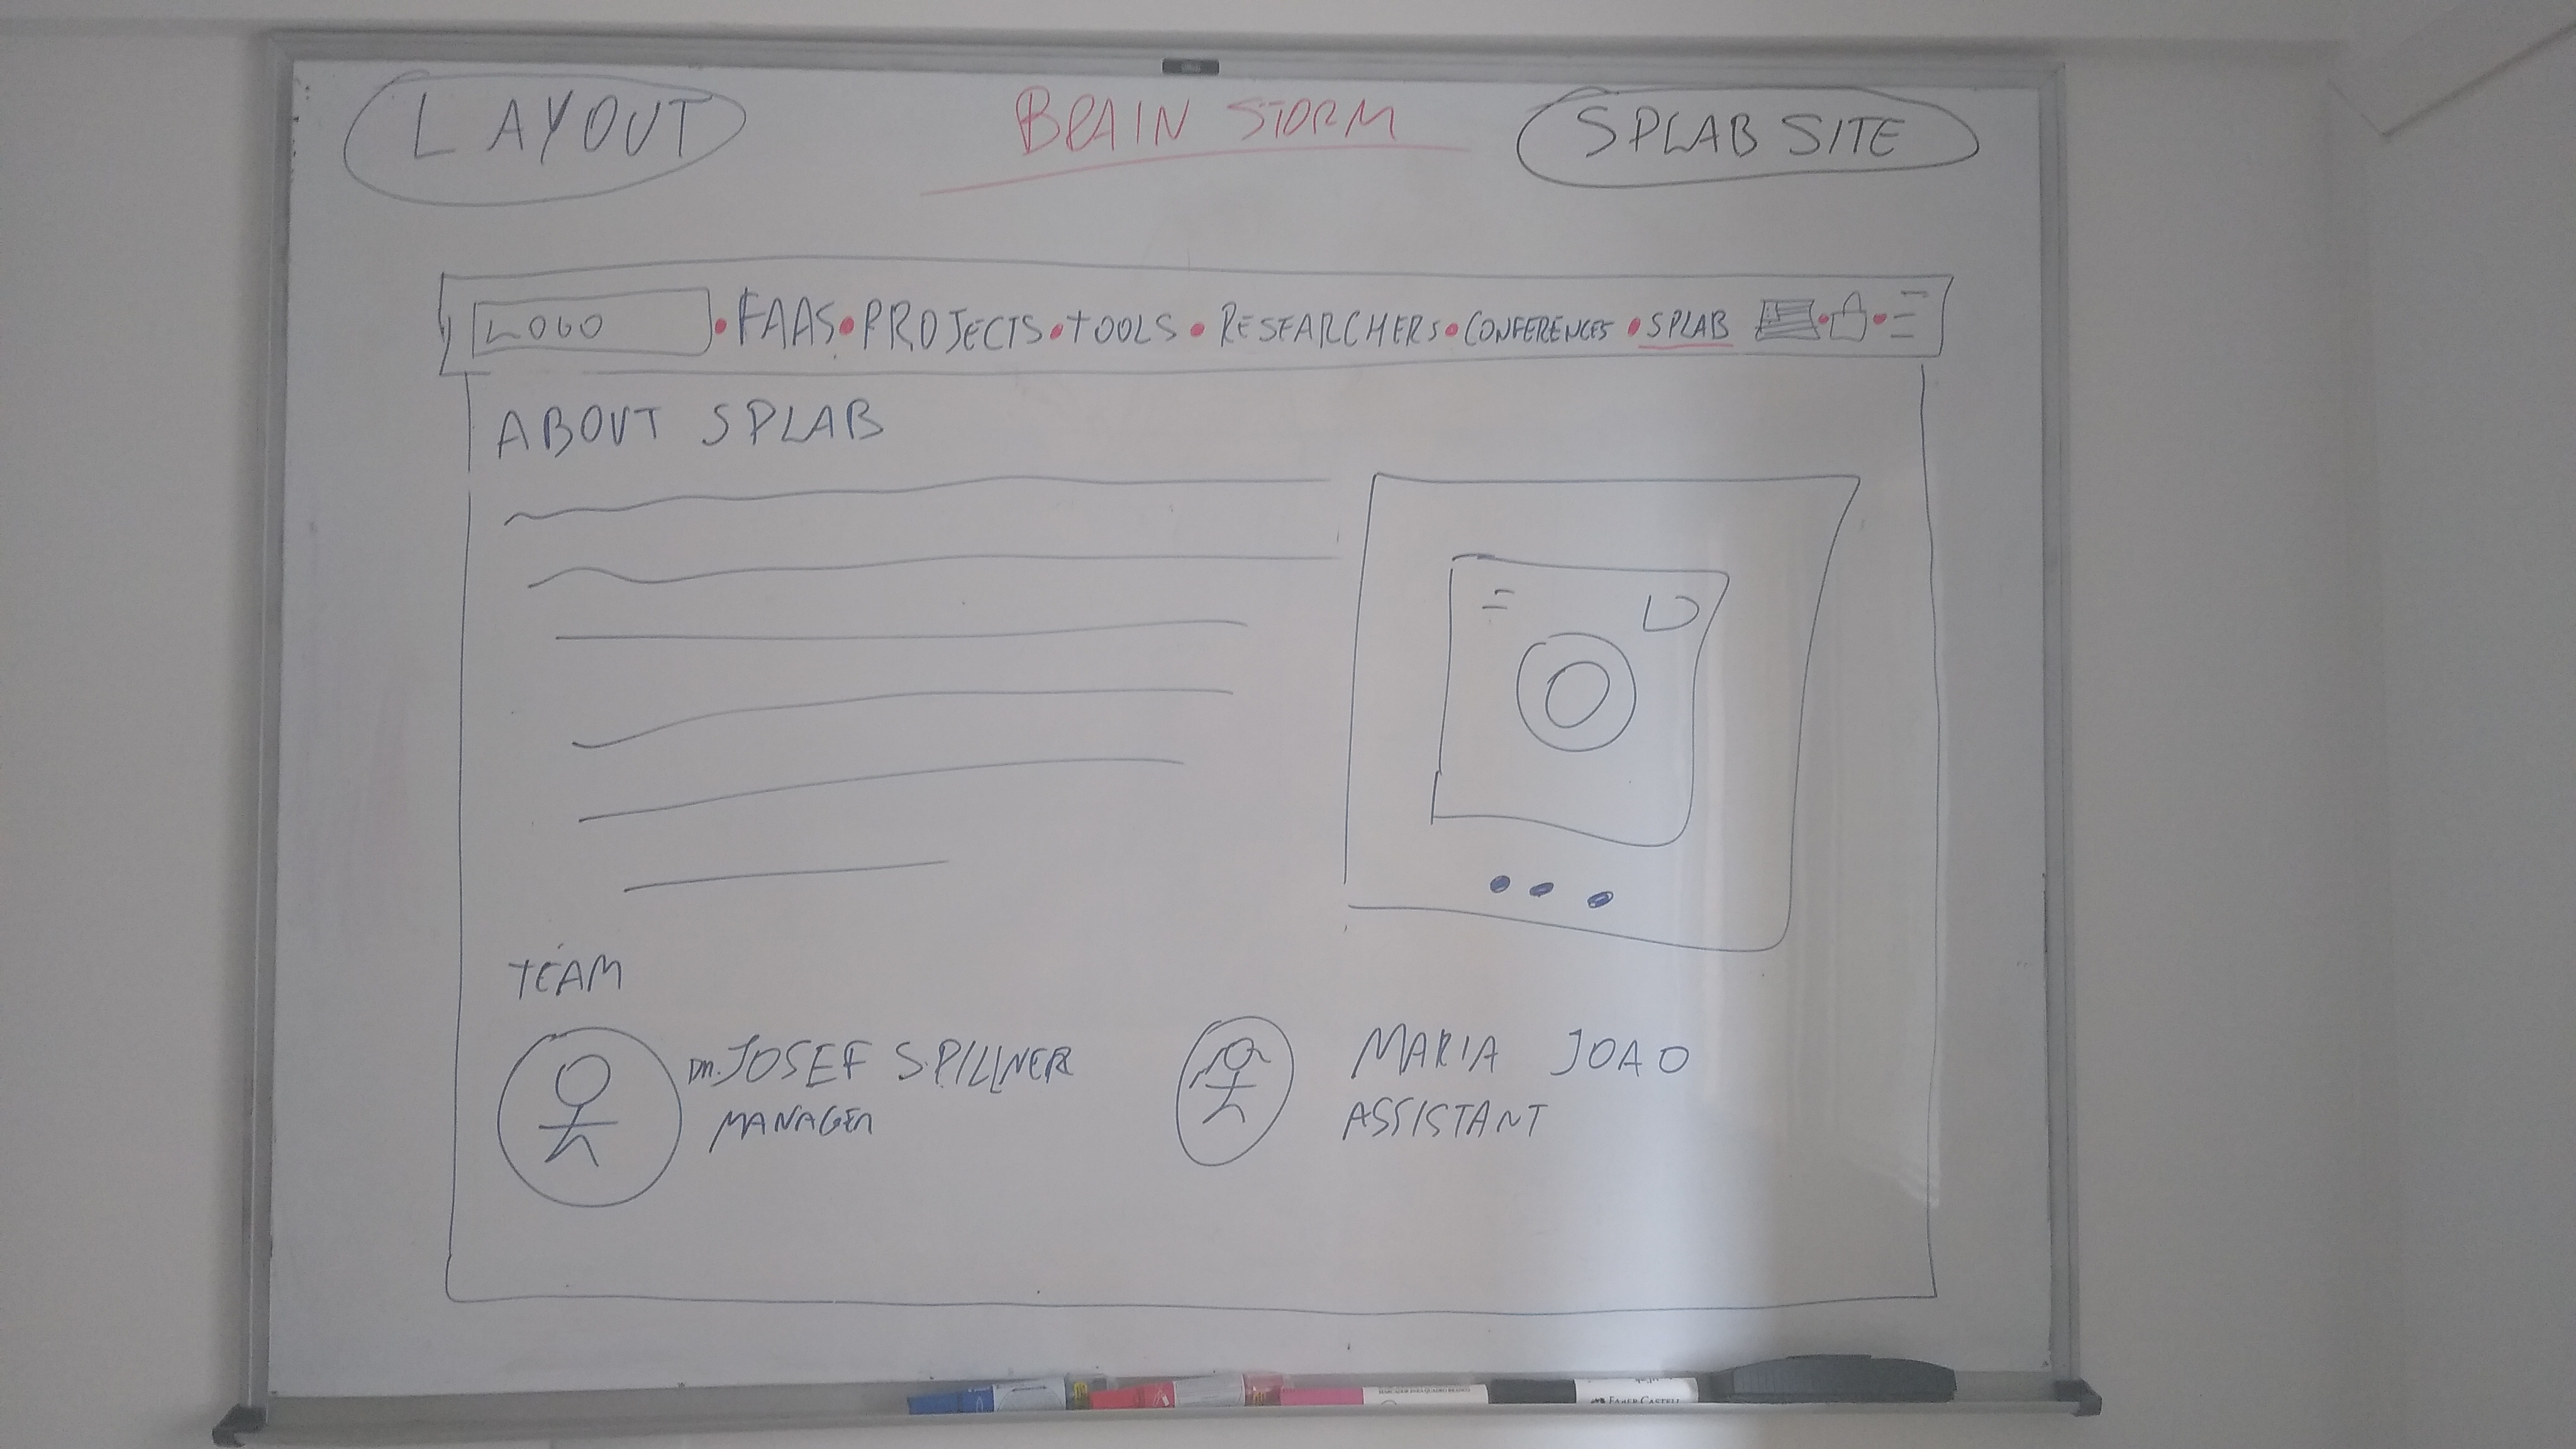 LAYOUT
BRAIN STORM
SPLAB SITE
LOGO • FAAS • PROJECTS • TOOLS • RESEARCHERS • CONFERENCES • SPLAB
ABOUT SPLAB
TEAM
DR. JOSEF SPILLNER
MANAGER
MARIA JOAO
ASSISTANT
FABER CASTELL